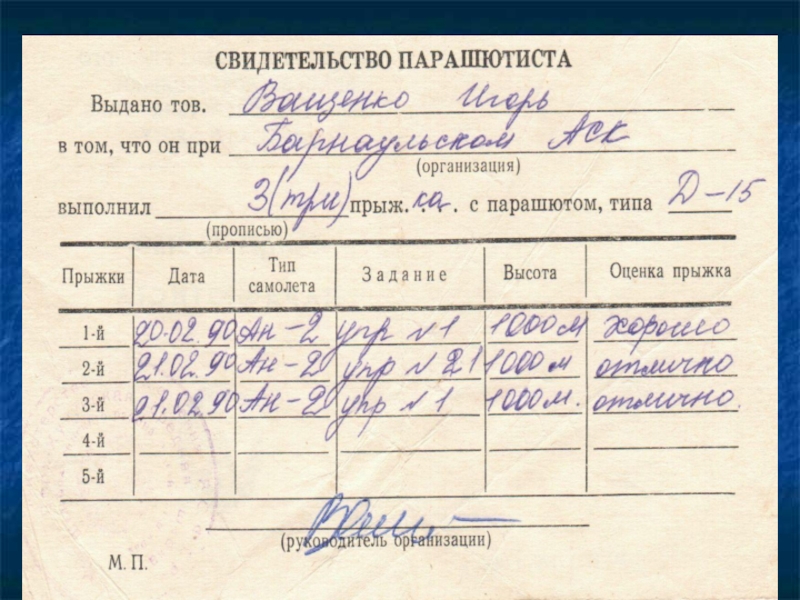 СВИДЕТЕЛЬСТВО ПАРАШЮТИСТА
Выдано тов. Ващенко Игорь
в том, что он при Барнаульском АСК
(организация)
выполнил 3 (три) прыж. ка . с парашютом, типа Д-15
(прописью)
Прыжки Дата Тип самолета Задание Высота Оценка прыжка
1-й 20.02.90 Ан-2 упр №1 1000м хорошо
2-й 21.02.90 Ан-2 упр №21 1000м отлично
3-й 21.02.90 Ан-2 упр №1 1000м. отлично.
4-й
5-й
(руководитель организации)
М. П.